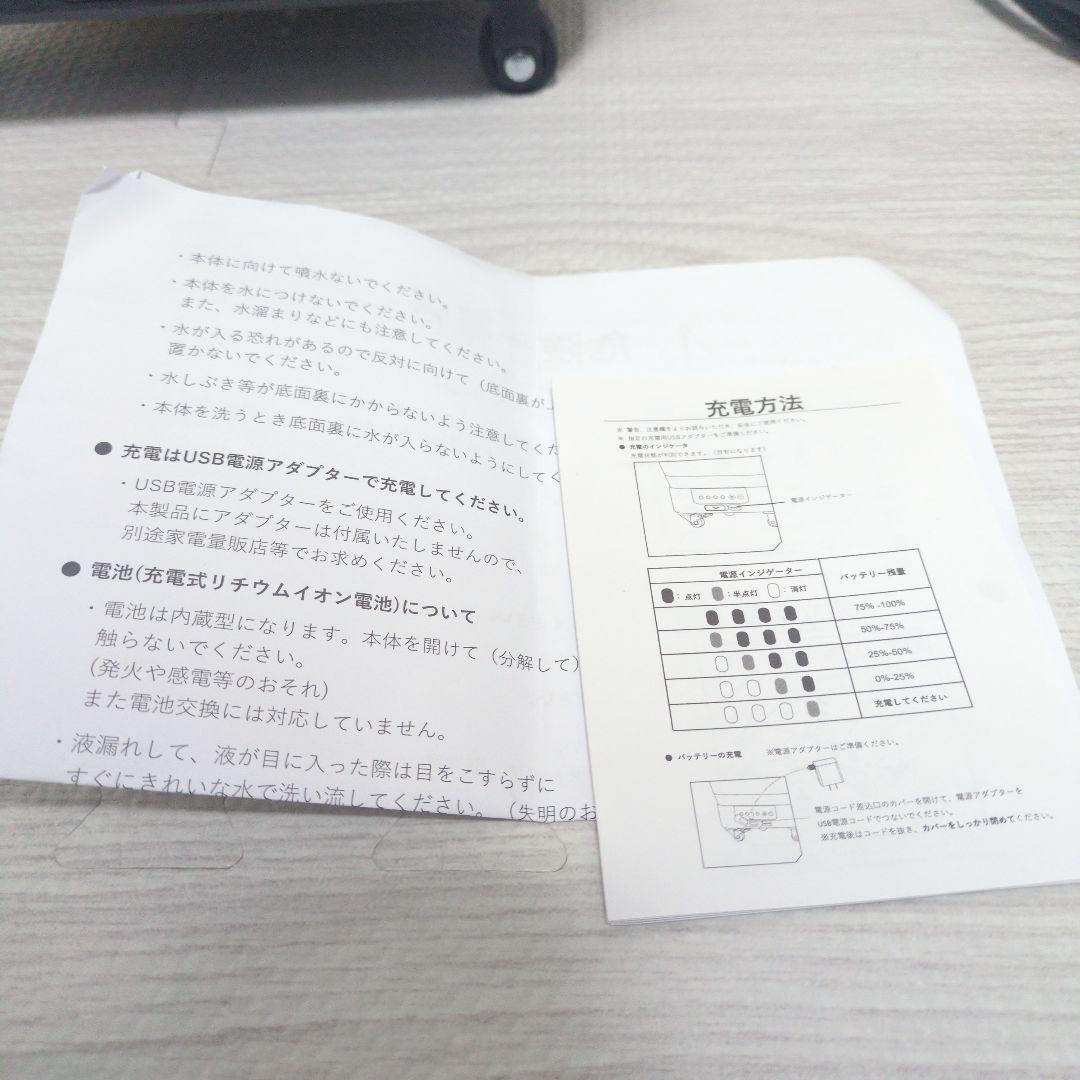 ・本体に向けて噴水ないでください。
・本体を水につけないでください。
また、水溜まりなどにも注意してください。
・水が入る恐れがあるので反対に向けて（底面裏が上
置かないでください。
・水しぶき等が底面裏にかからないよう注意してくだ
・本体を洗うとき底面裏に水が入らないようにしてく
● 充電はUSB電源アダプターで充電してください。
・USB電源アダプターをご使用ください。
本製品にアダプターは付属いたしませんので、
別途家電量販店等でお求めください。
● 電池(充電式リチウムイオン電池)について
・電池は内蔵型になります。本体を開けて（分解して）
触らないでください。
(発火や感電等のおそれ)
また電池交換には対応していません。
・液漏れして、液が目に入った際は目をこすらずに
すぐにきれいな水で洗い流してください。（失明のお
充電方法
※ 警告、注意欄をよくお読みいただき、安全にご使用ください。
※ 指定の充電用USBアダプターをご準備ください。
● 充電のインジケータ
充電状態が判別できます。（目安になります）
電源インジゲーター
電源インジゲーター
バッテリー残量
：点灯 ：半点灯 ：消灯
75% -100%
50%-75%
25%-50%
0%-25%
充電してください
● バッテリーの充電 ※電源アダプターはご準備ください。
電源コード差込口のカバーを開けて、電源アダプターを
USB電源コードでつないでください。
※充電後はコードを抜き、カバーをしっかり閉めてください。